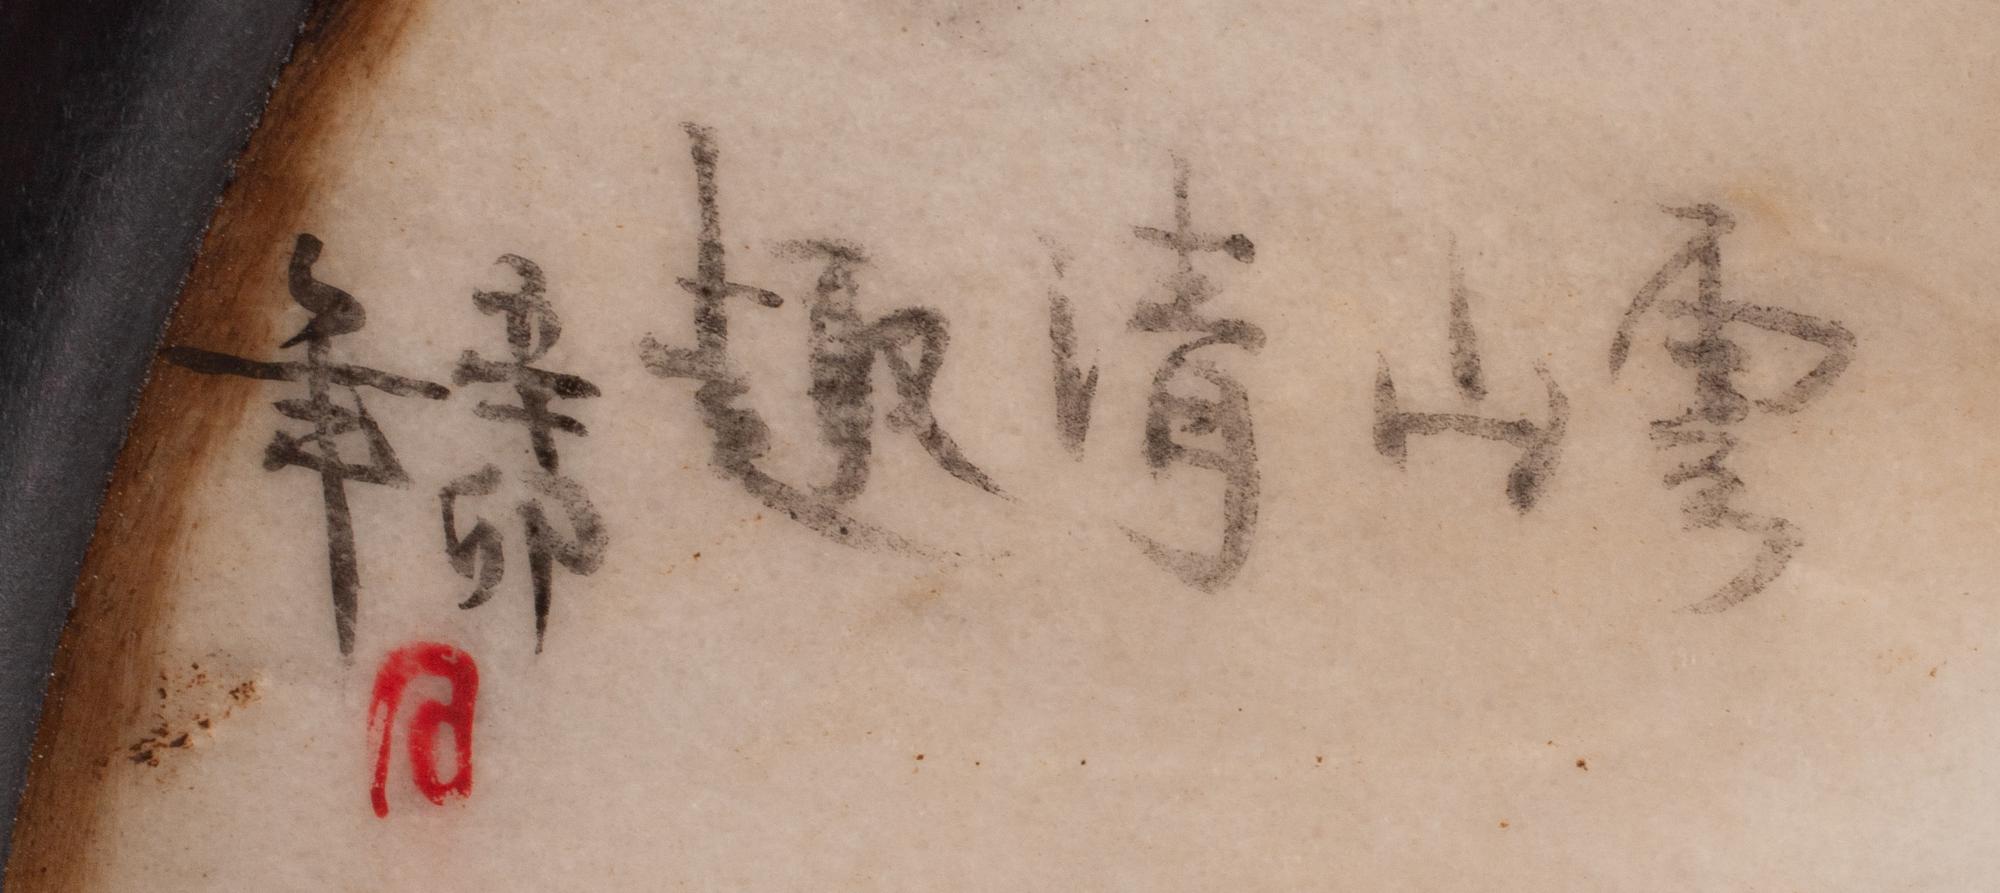 雲山清趣
辛卯
年